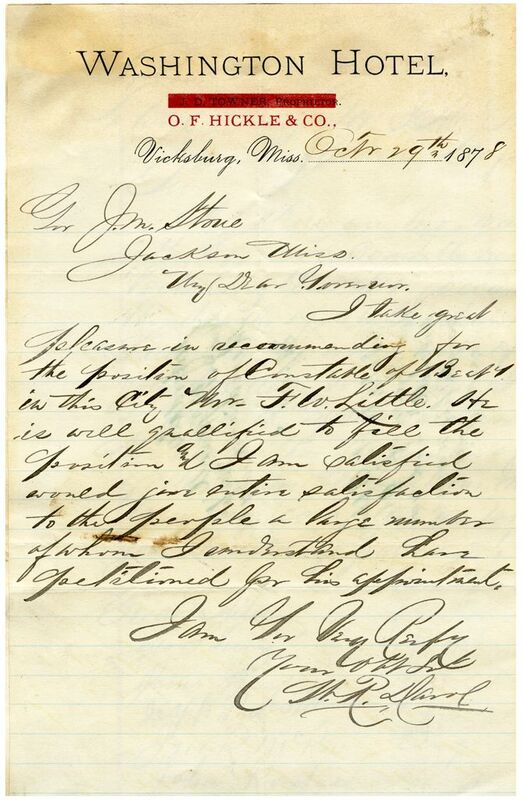 WASHINGTON HOTEL,
J. D. TOWNER, PROPRIETOR.
O. F. HICKLE & CO.,
Vicksburg, Miss. Octr 29th 1878
Gov J.M. Stone
Jackson Miss.
My Dear Governor.
I take great
pleasure in recommending for
the position of Constable of Beat 1
in this City Mr. F. W. Little. He
is well quallified to fill the
position and I am satisfied
would give entire satisfaction
to the people a large number
of whom I understand have
petitioned for his appointment.
I am Gov Very Respy
Your Obt Svt
R.